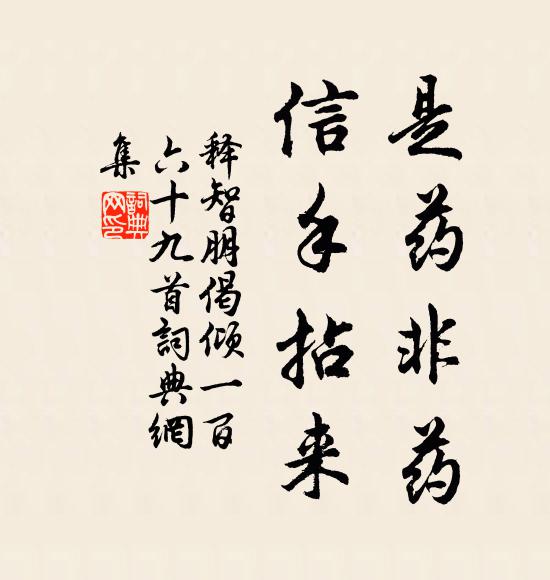 是药非药
信手拈来
释智朋偈倾一百
六十九首詞典網
集
詞典
网印